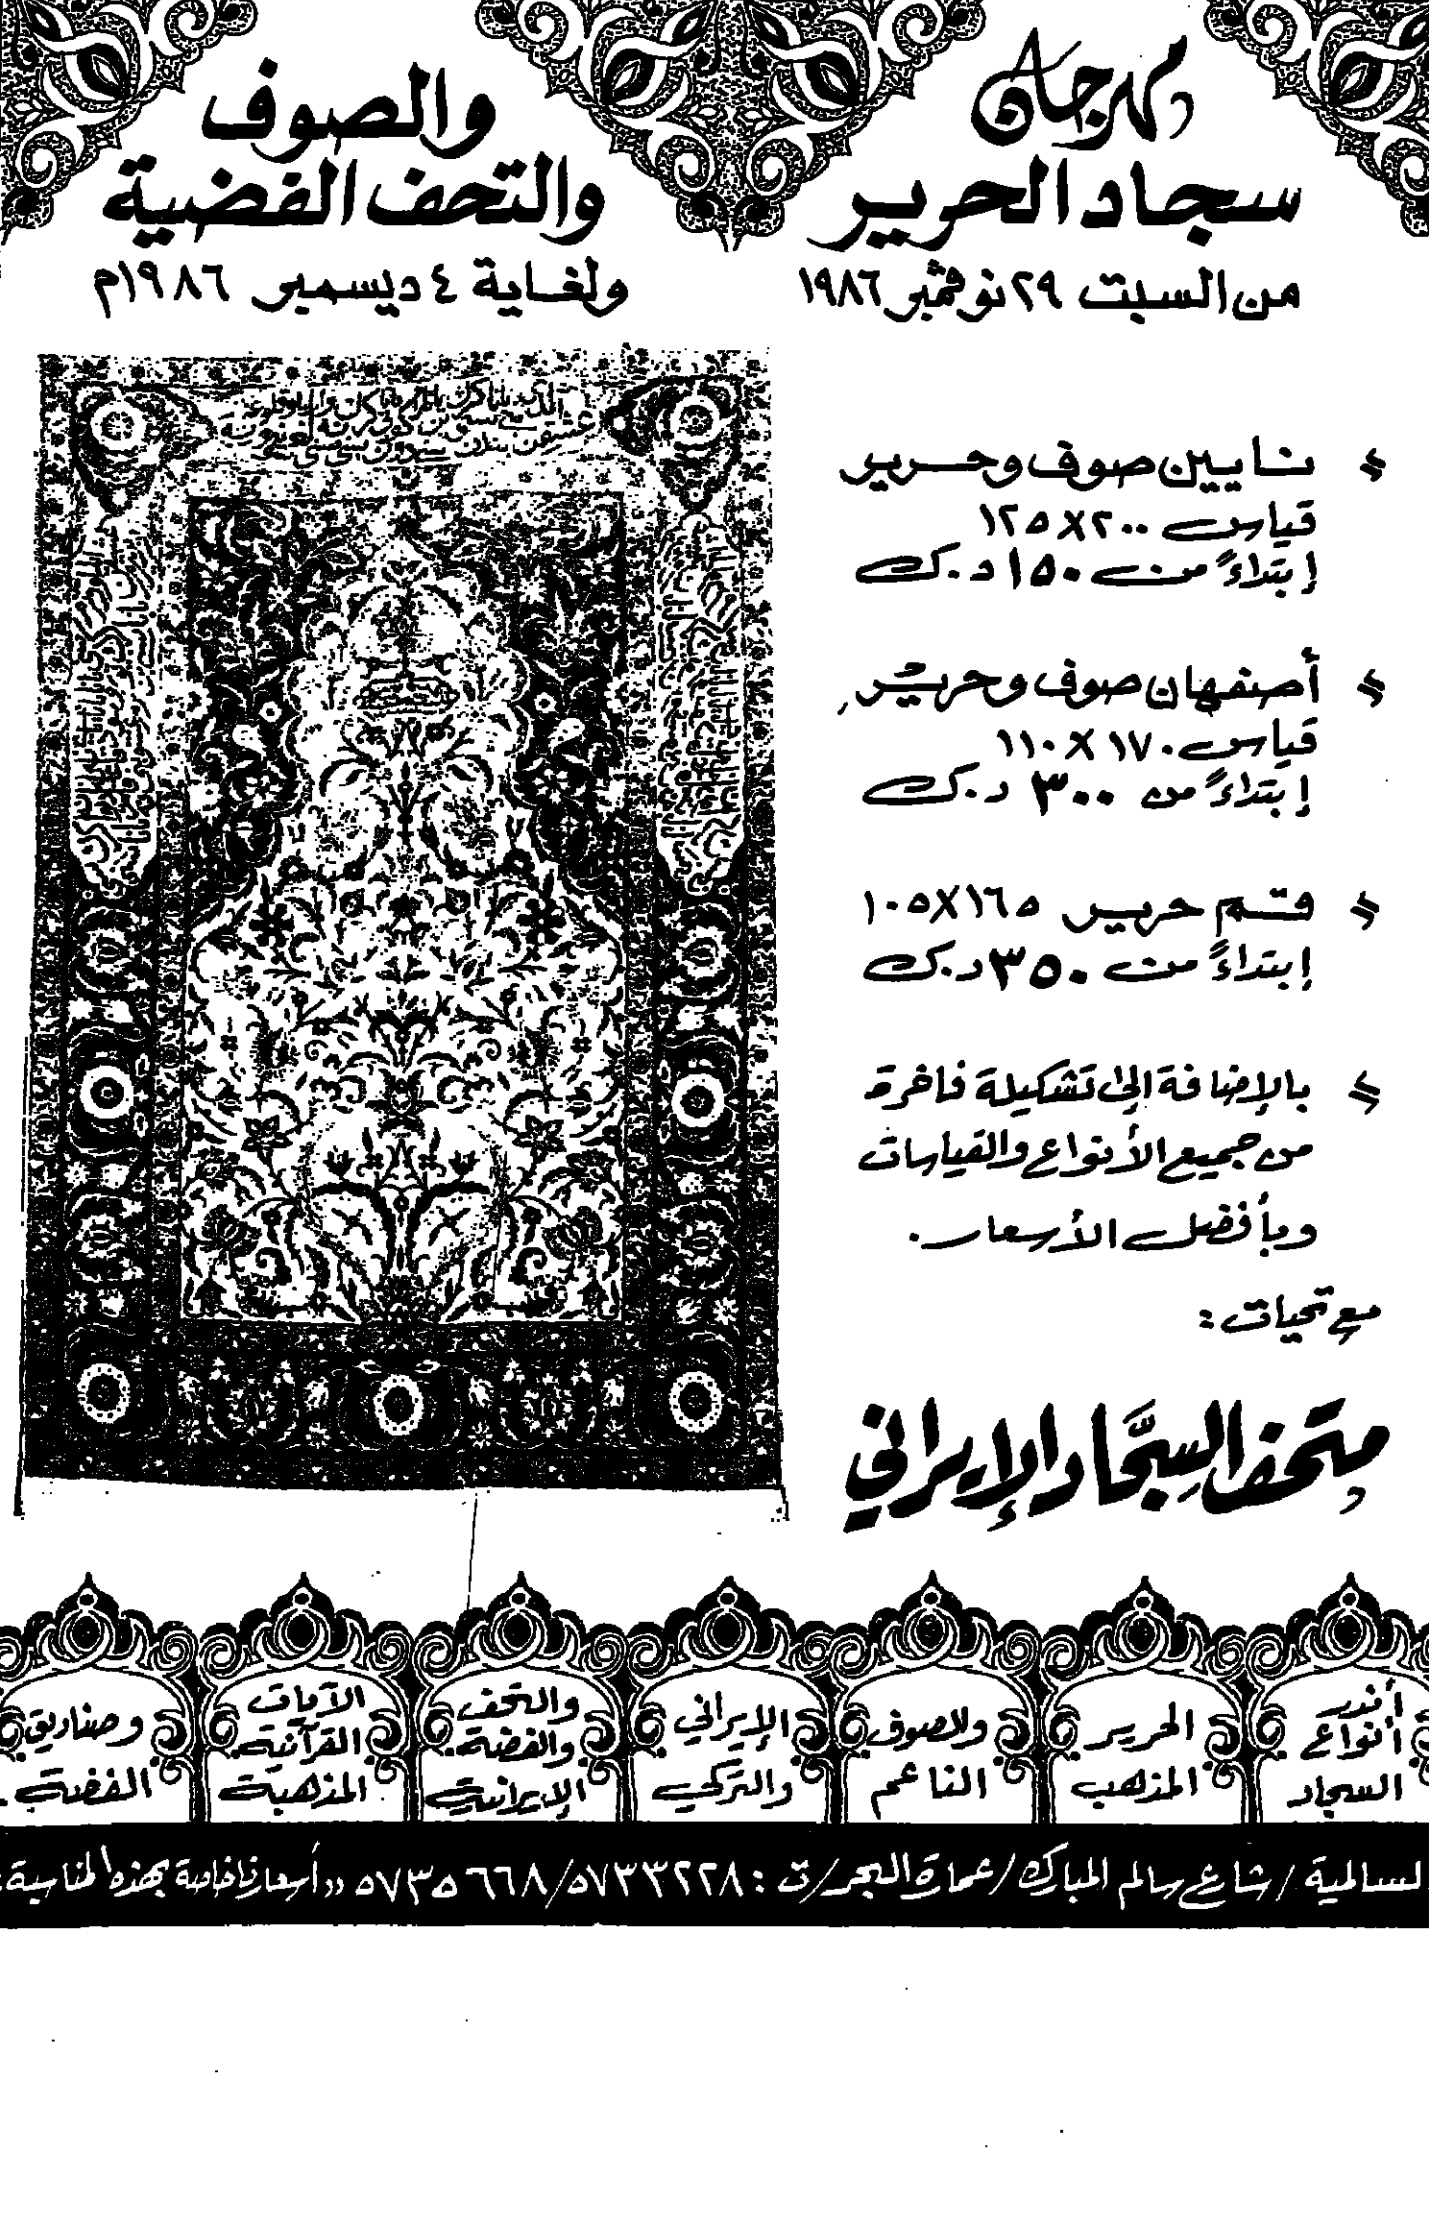 مهرجان
سجاد الحرير
والصوف
والتحف الفضية
من السبت ٢٩ نوفمبر ١٩٨٦
ولغاية ٤ ديسمبر ١٩٨٦م
نايين صوف وحرير
قياس ٢٠٠×١٢٥
إبتداءً من ١٥٠ د.ك
أصفهان صوف وحرير
قياس ١٧٠×١١٠
إبتداءً من ٣٠٠ د.ك
قم حرير ١٦٥×١٠٥
إبتداءً من ٣٥٠ د.ك
بالإضافة إلى تشكيلة فاخرة
من جميع الأنواع والقياسات
وبأفضل الأسعار.
مع تحيات :
متحف السجّاد الإيراني
أندر
أنواع
السجاد
الحرير
المذهب
والصوف
الناعم
الإيراني
والتركي
والتحف
والفضة
الإيرانية
الآيات
القرآنية
المذهبة
وصناديق
الفضة.
السالمية / شارع سالم المبارك / عمارة البحر / ت : ٥٧٣٣٢٢٨ / ٥٧٣٥٦٦٨ «أسعارنا خاصة بهذه المناسبة»